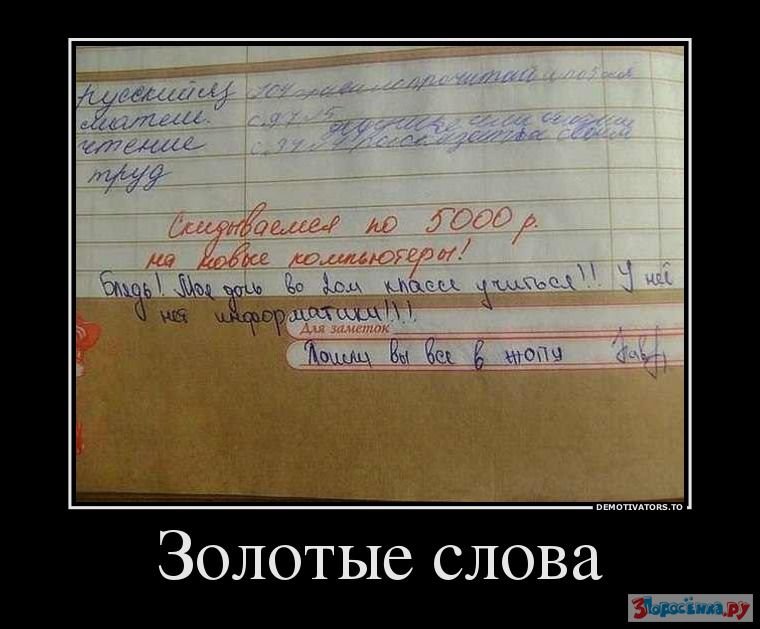 русский яз 104 прочитай
матем. с.97 №5
чтение с.34
труд
Скидываемся по 5000 р.
на новые компьютеры!
Блядь! Моя дочь во 2ом классе учиться!! У неё
нет информатики!!!
Для заметок
Пошли вы все в жопу
DEMOTIVATORS.TO
Золотые слова
3Поросёнка.ру